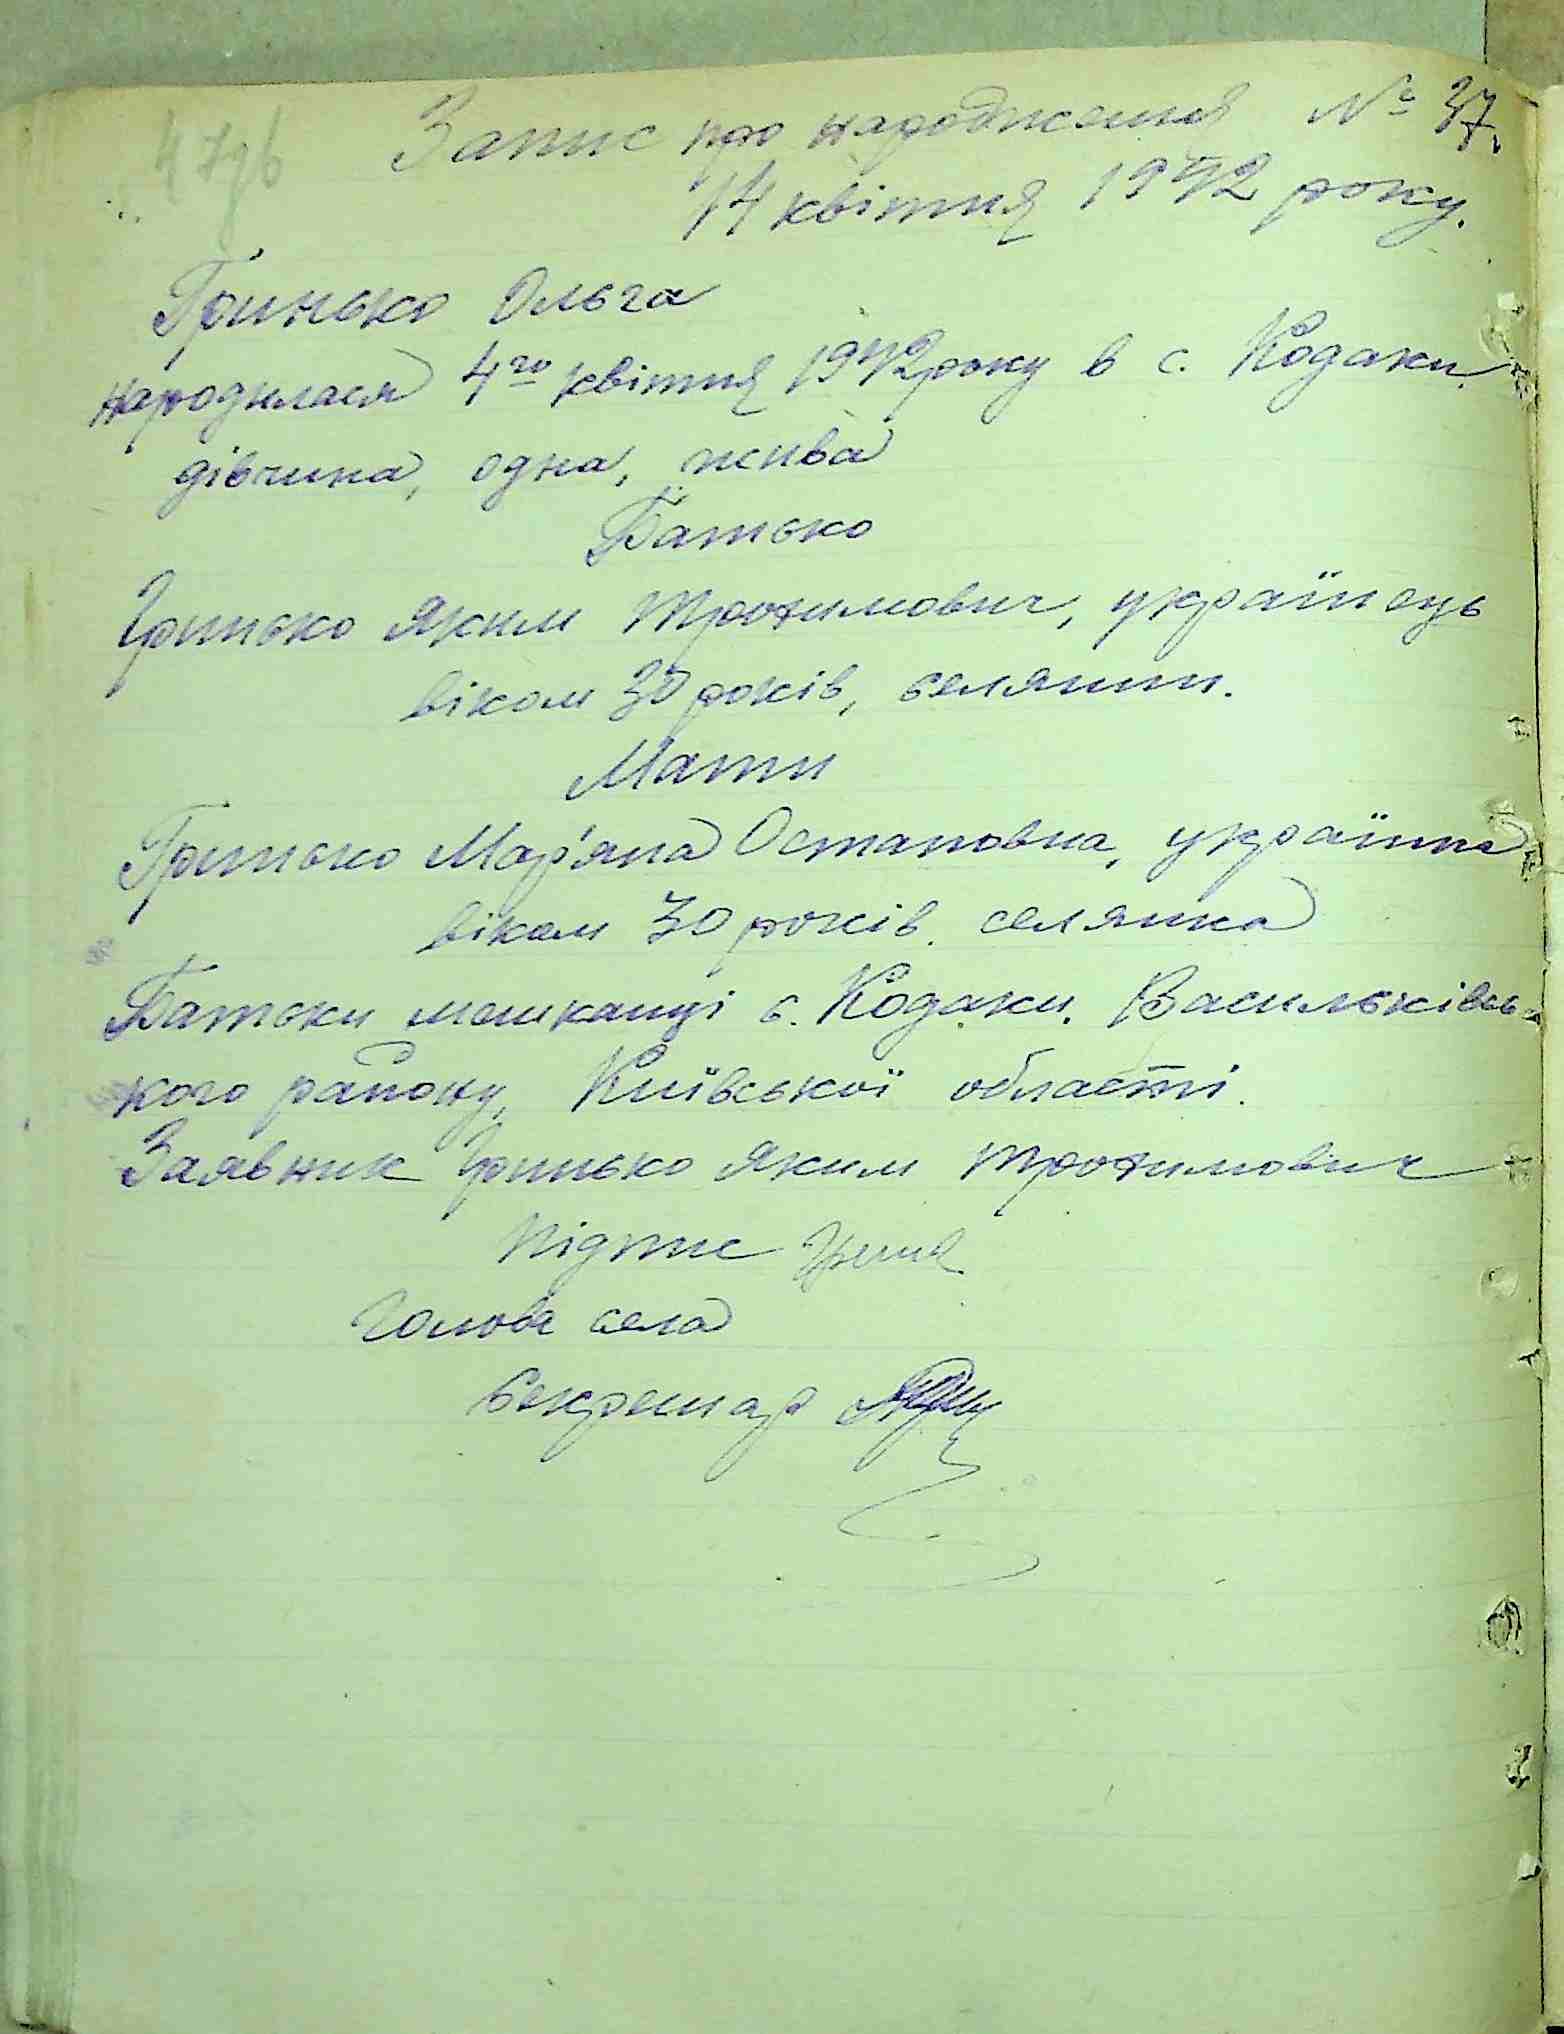 Запис про народження № 37.
14 квітня 1942 року.
Гринько Ольга
народилася 4го квітня 1942 року в с. Кодаки.
дівчина, одна, жива
Батько
Гринько Яким Трохимович, українець
віком 30 років, селянин.
Мати
Гринько Мар'яна Остаповна, українка
віком 30 років. селянка
Батьки мешканці с. Кодаки. Васильківсь-
кого району, Київської області.
Заявник Гринько Яким Трохимович
Підпис
Голова села
Секретар